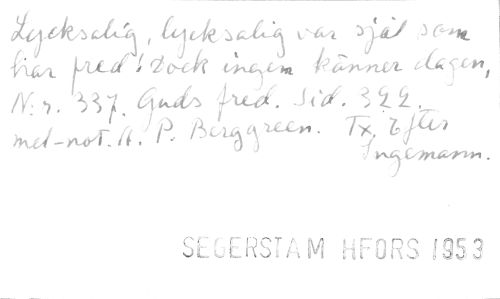 Lycksalig, lycksalig var själ som
har fred! Dock ingen känner dagen,
N:r. 337. Guds fred. Sid. 322.
mel-not. A. P. Berggreen. Tx. Efter
Ingemann.
SEGERSTAM HFORS 1953